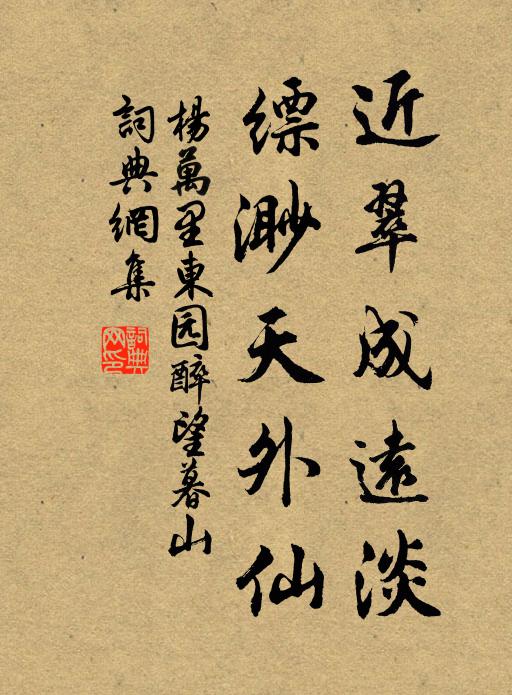 近翠成遠淡
缥渺天外仙
楊萬里東园醉望暮山
詞典網集
詞典網印